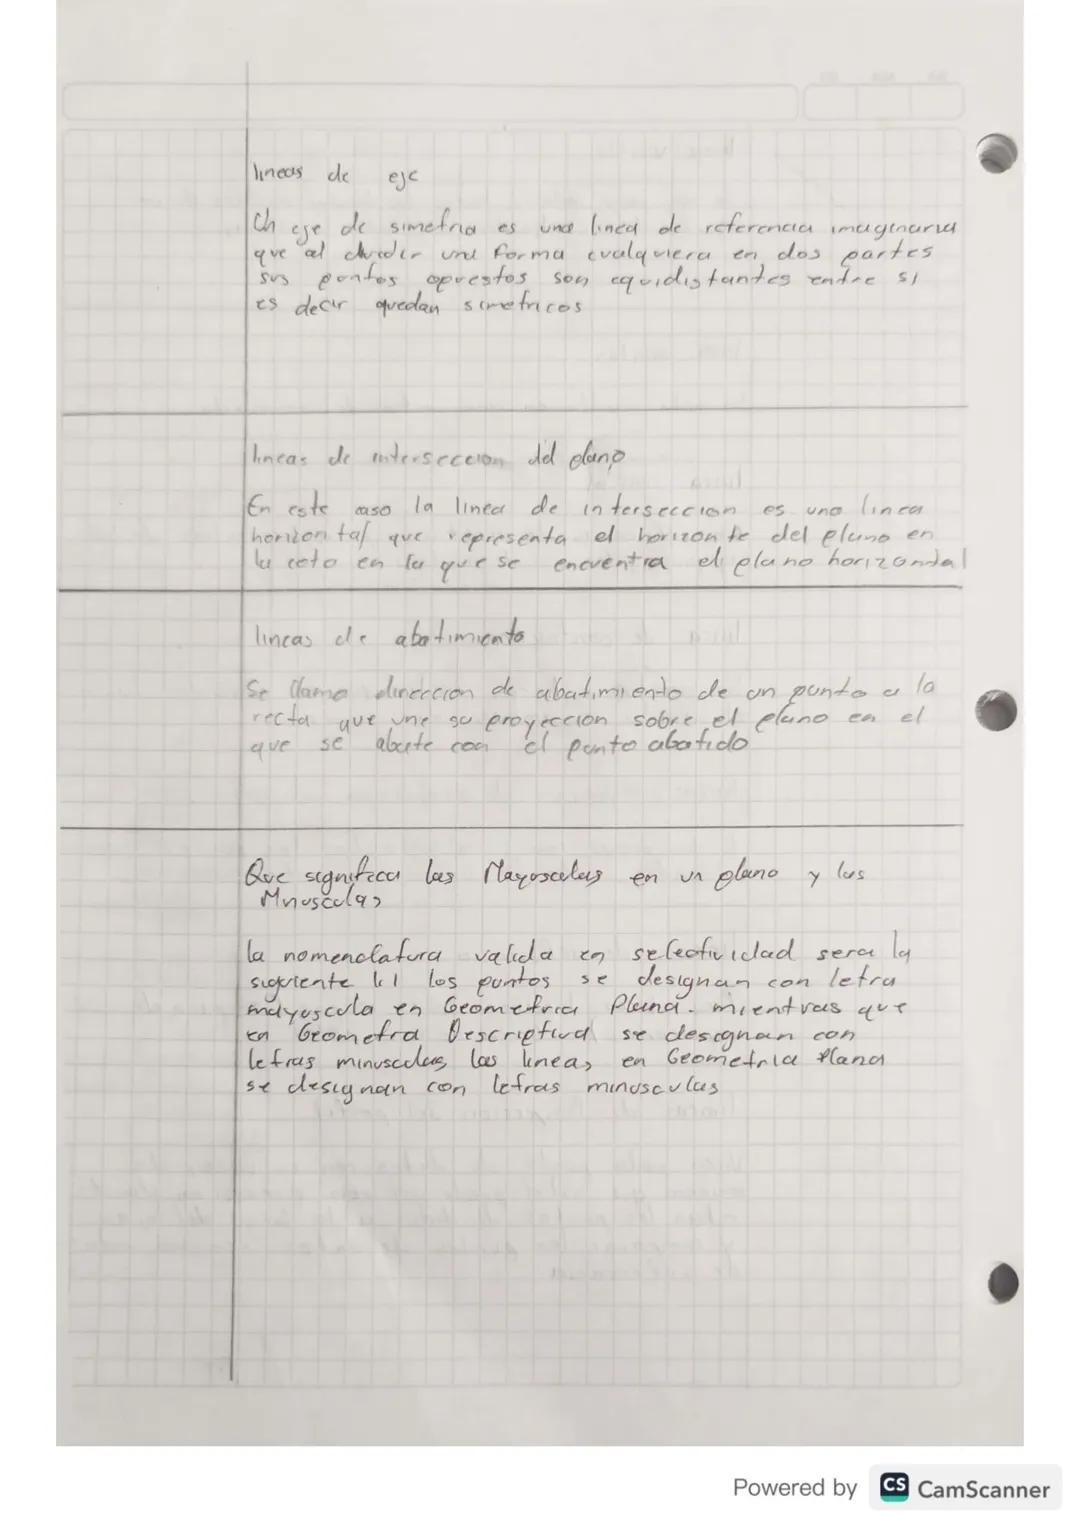 lineas de eje
Un eje de simetria es una linea de referencia imaginaria
que al dividir una forma cualquiera en dos partes
sus puntos opuestos son equidistantes entre si
es decir quedan simetricos
lineas de interseccion del plano
En este caso la linea de interseccion es una linea
horizontal que representa el horizonte del plano en
la en la que se encuentra el plano horizontal
lineas de abatimiento
Se llama direccion de abatimiento de un punto a la
recta que une su proyeccion sobre el plano en el
que se abate con el punto abatido
Que significa las Mayusculas en un plano y las
Minusculas
la nomenclatura valida en selectividad sera la
siguiente los puntos se designan con letra
mayuscula en Geometria Plana. mientras que
en Geometra Descriptiva se designan con
letras minusculas las lineas en Geometria Plana
se designan con letras minusculas
Powered by CS CamScanner